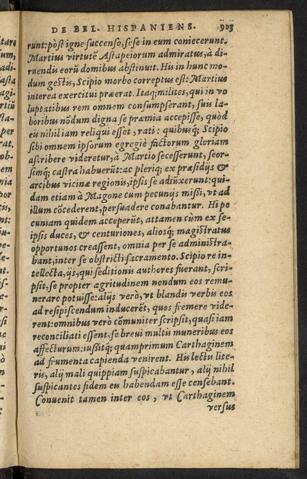 DE BEL. HISPANIENS. 923
runt: pòst igne succenso, sese in eum coniecerunt.
Martius virtutē Astapeorum admiratus, à di-
ruendis eorū domibus abstinuit. His in hunc mo-
dum gestis, Scipio morbo correptus est: Martius
interea exercitui praeerat. Itaq; milites, qui in vo
luptatibus rem omnem consumpserant, suis la-
boribus nōdum digna se praemia accepisse, quòd
eu nihil iam reliqui esset, rati: quibusq; Scipio
sibi omnem ipsorum egregiè factorum gloriam
ascribere videretur, à Martio secesserunt, seor-
simq; castra habuerūt: ac pleriq; ex praesidijs &
arcibus vicinae regionis, ipsis se adiūxerunt: qui-
dam etiam à Magone cum pecunijs missi, vt ad
illum cōcederent, persuadere conabantur. Hi pe
cuniam quidem acceperūt, attamen cùm ex se-
ipsis duces, & centuriones, aliosq; magistratus
opportunos creassent, omnia per se administra-
bant, inter se obstricti sacramento. Scipio re in-
tellecta, ijs, qui seditionis authores fuerant, scri-
psit, se propter aegritudinem nondum eos remu-
nerare potuisse: alijs verò, vt blandis verbis eos
ad resipiscendum induceret, quos fremere vide-
rent: omnibus verò cōmuniter scripsit, quasi iam
reconciliati essent. se breui multis muneribus eos
affecturum: iußitq; quamprimum Carthaginem
ad frumenta capienda venirent. His lectis lite-
ris, alij mali quippiam suspicabantur, alij nihil
suspicantes fidem eu habendam esse censebant.
Conuenit tamen inter eos, vt Carthaginem
versus